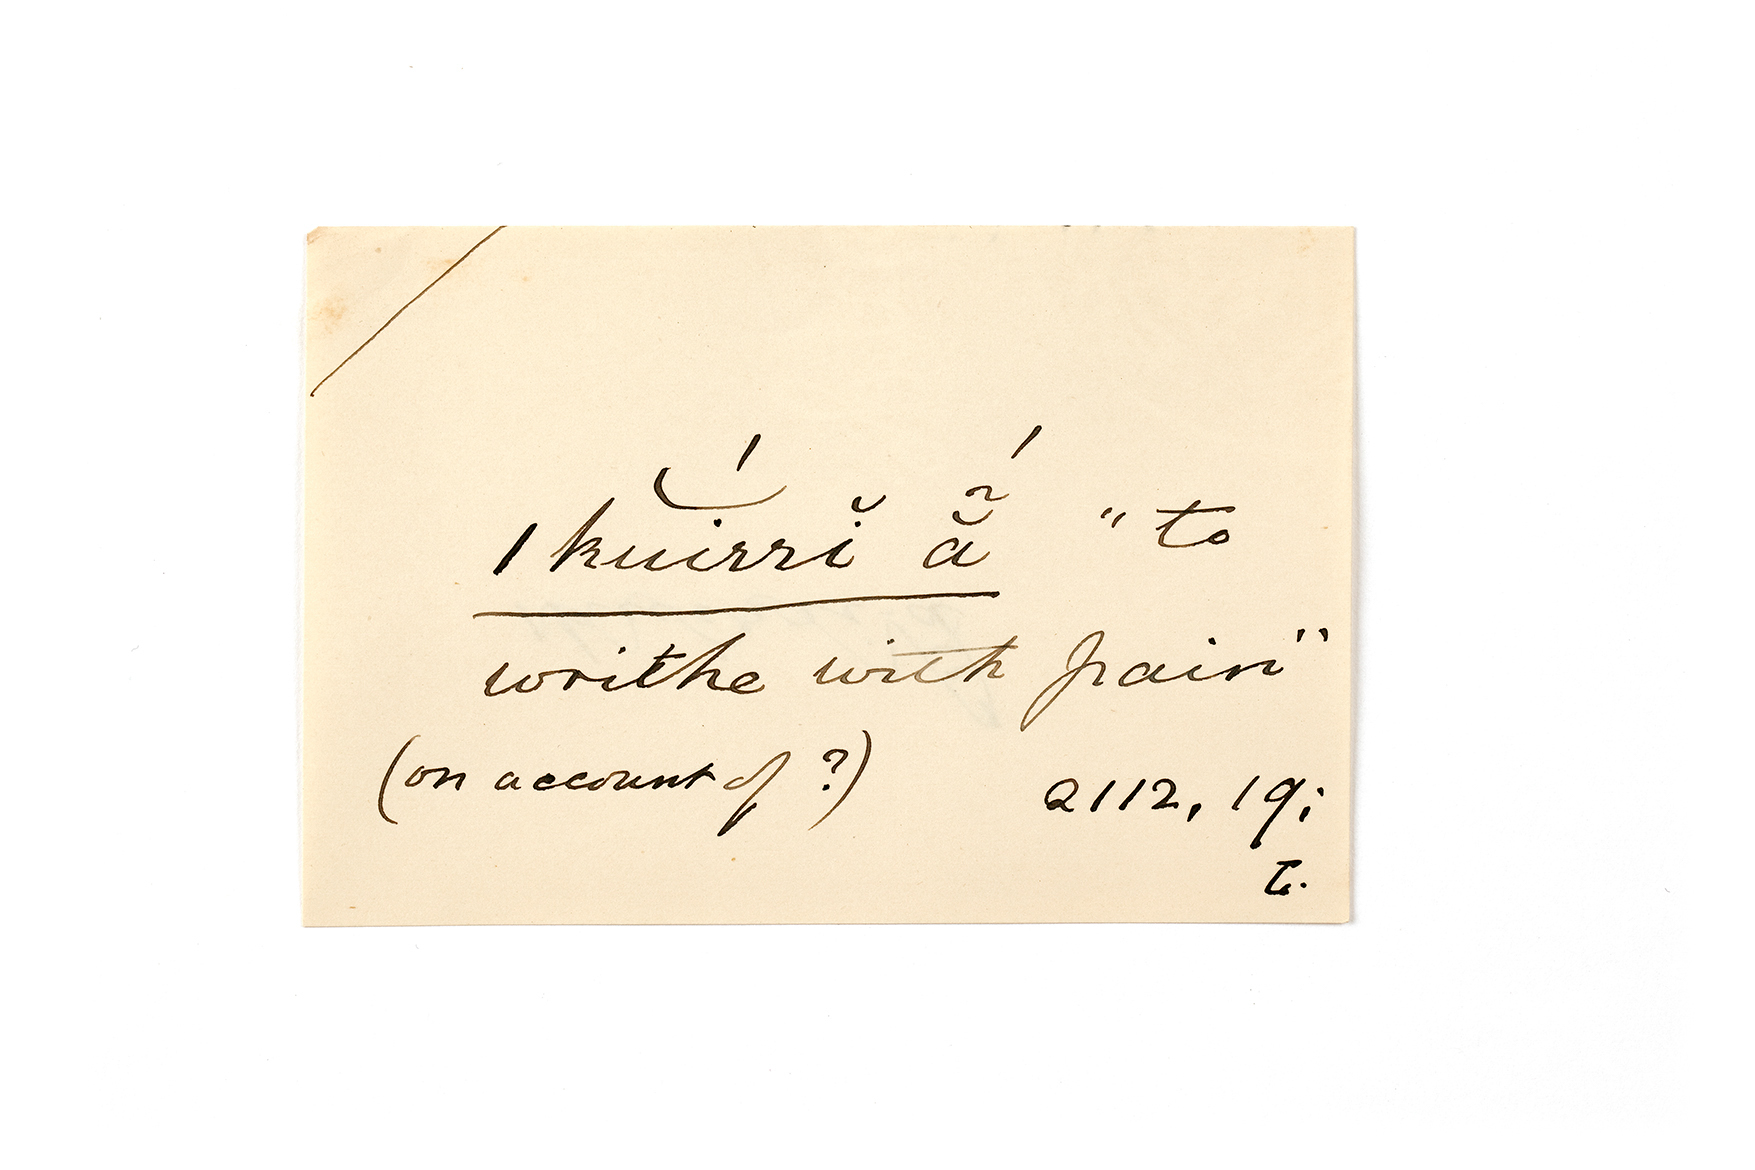 |kuĭ́rrĭ ằ̃́ "to
writhe with pain"
(on account of ?) 2112, 19;
T.